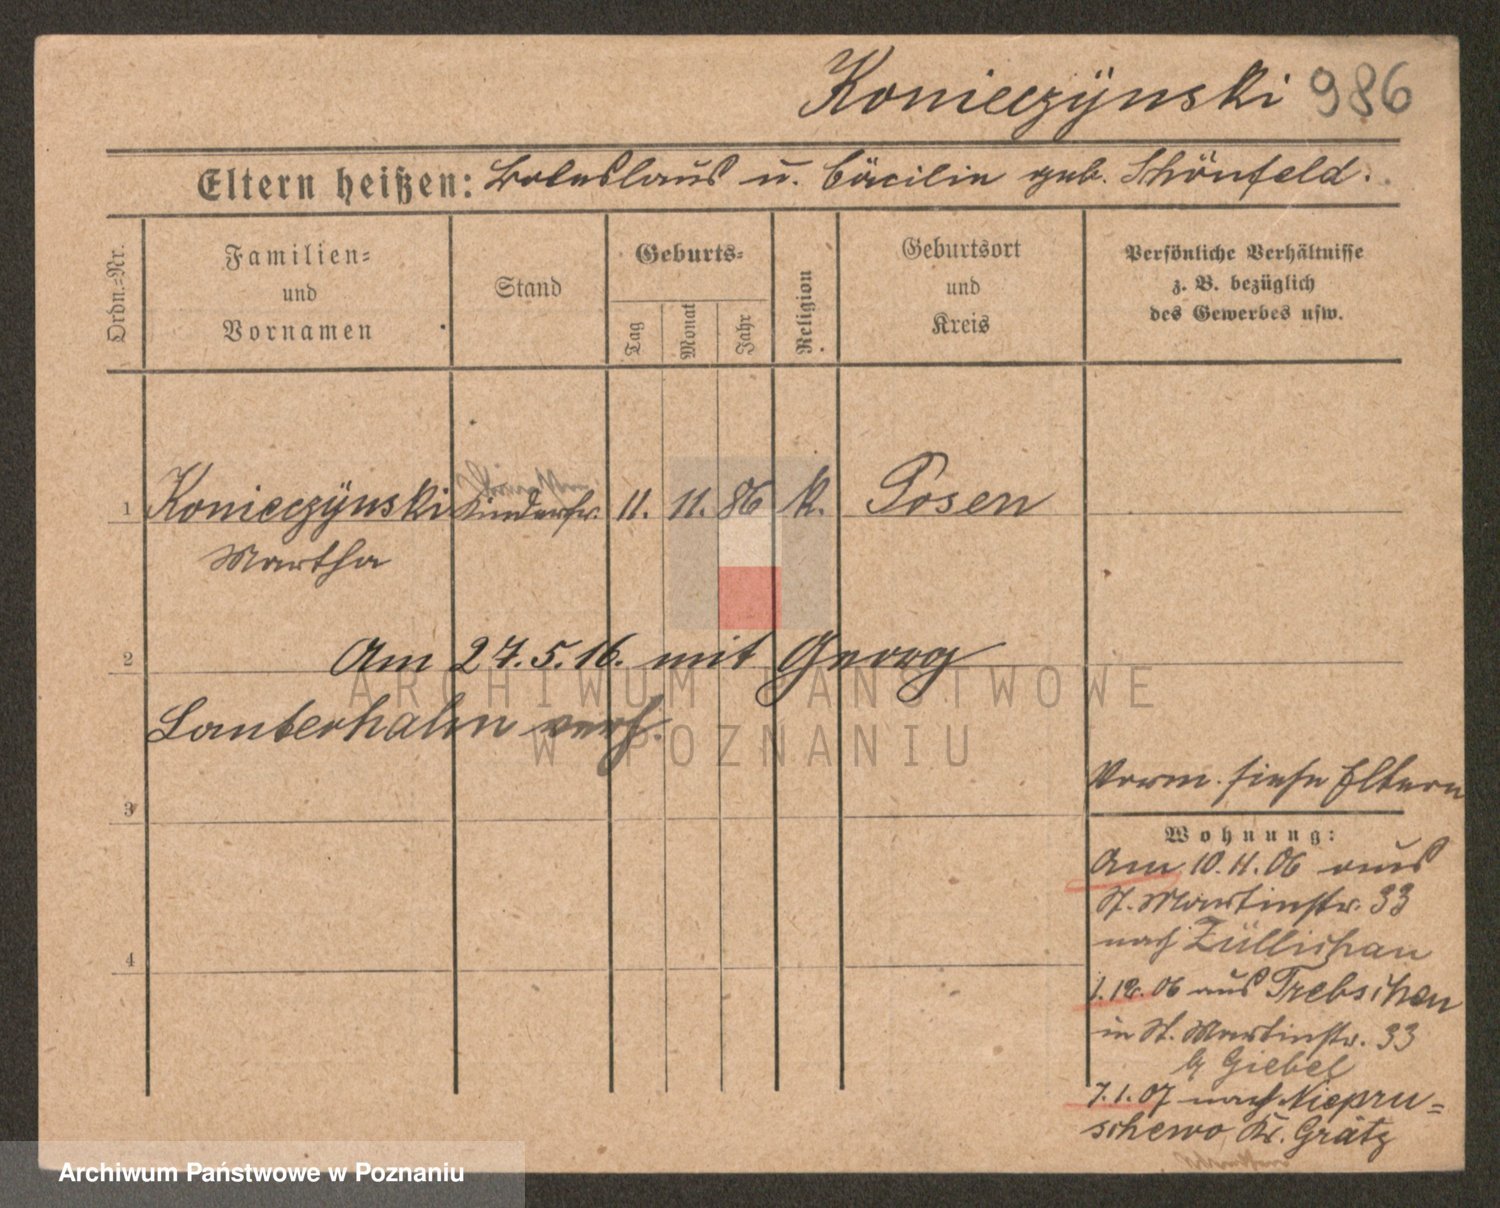 Konieczÿnski 986
Eltern heißen: Boleslaus u. Cäcilie geb. Schönfeld.
Ordn.=Nr.
Familien=
und
Vornamen
Stand
Geburts=
Tag
Monat
Jahr
Religion
Geburtsort
und
Kreis
Persönliche Verhältnisse
z. B. bezüglich
des Gewerbes usw.
1 Konieczÿnski Kinderfr. 11. 11. 86 k. Posen
Martha
2 Am 27.5.16. mit Georg
Lauterhahn verh.
Vorm. siehe Eltern
3
Wohnung:
Am 10.11.06 aus
St. Martinstr. 33
nach Züllichau
4
1.12.06 aus Trebschen
in St. Martinstr. 33
b Giebel
7.1.07 nach Niepru=
schewo Kr. Grätz
ARCHIWUM PAŃSTWOWE
W POZNANIU
Archiwum Państwowe w Poznaniu